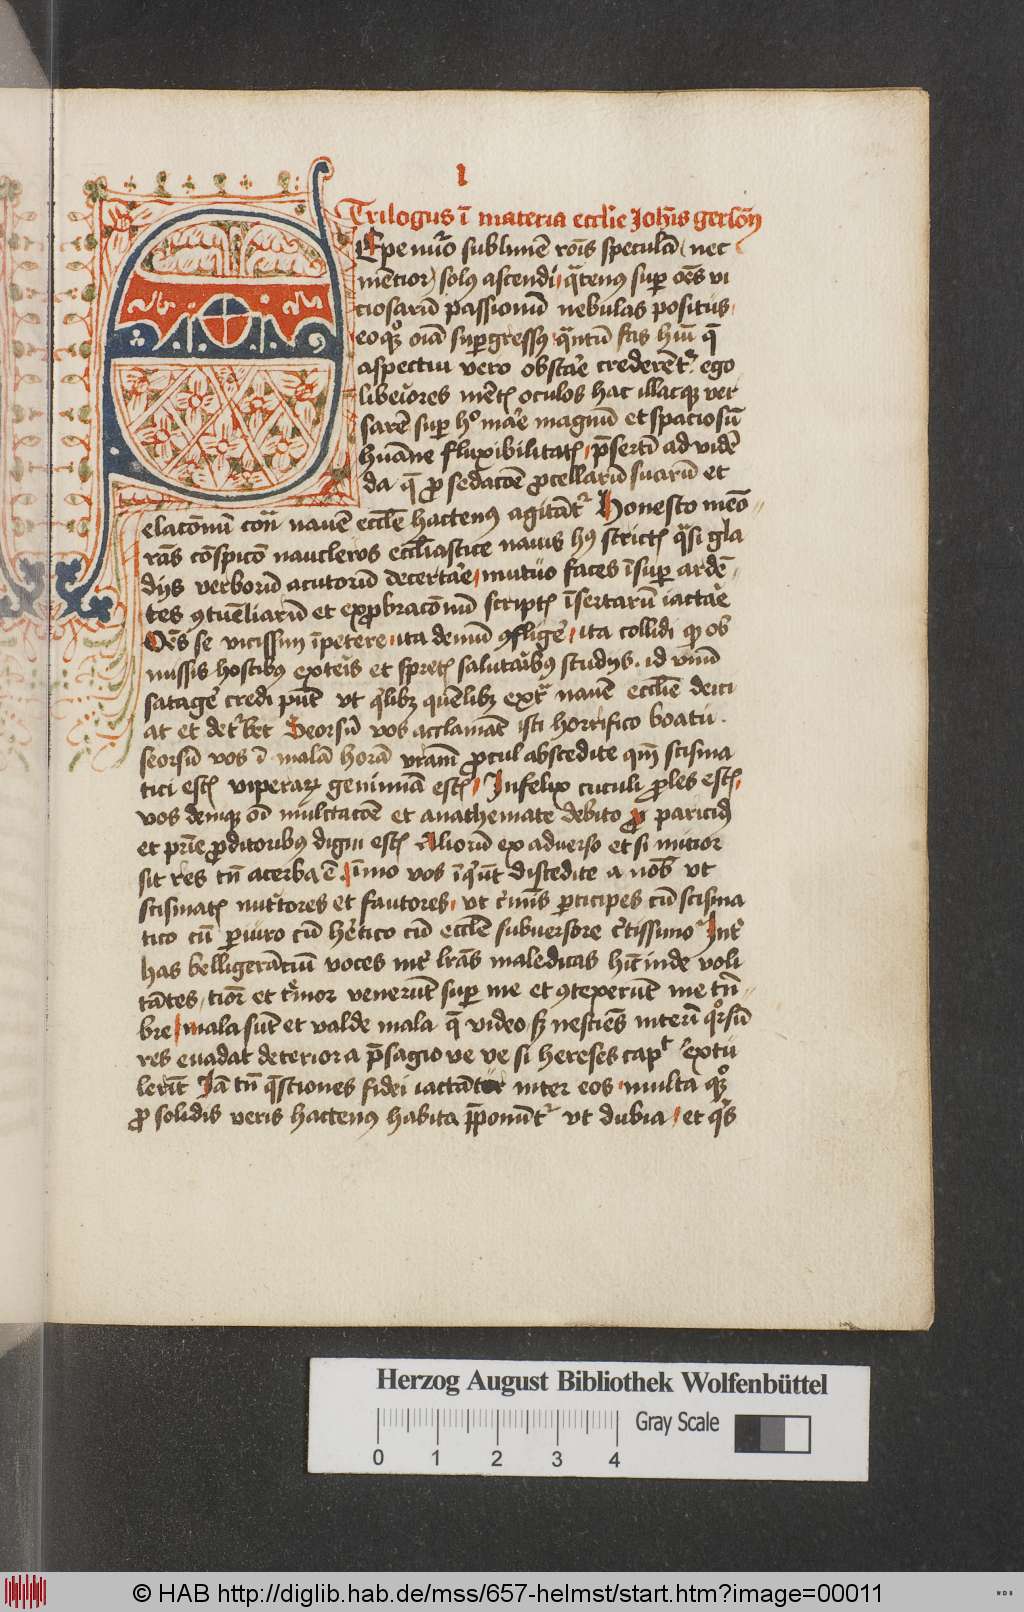 1
Trilogus ī materia eccl̄ie Ioh̄is gerson
Epe nūo sublimē rōis speculā nec
mētior solus ascendi qᷓtenus sup oēs vi
ciosarū passionū nebulas positus
eoqꝫ oīa supgressus quātū fas
aspectui vero obstare crederēt ego
liberiores mētis oculos hac illacqꝫ ver
sarē sup hoc mare magnū et spaciosū
humāne fluxibilitatis p̄sertī ad vidē
da q̄ ꝓ sedacōe ꝓcellarū suarū et
elacōnū nauē eccl̄ie hactenus agitāt Honesto meo
rās cōspicō naucleros eccl̄iastice nauis strictis qᷓsi gla
dijs verborū acutorū decertare mutuo faces īsup ardē
tes ꝯtumēliarū et exꝓbracōnū scriptis īsertarū iactare
Oēs se vicissim īpetere ita demū ꝯfligere ita collidi qꝫ ob
missis hostibus exteris et spretis salutaribus studijs id vnū
satagere credi put̄ vt qilibꝫ quēlibꝫ extᷓ nauē eccl̄ie deici
at et det̄bet Seorsū vos acclamāt isti horrifico boatu
seorsū vos ī malā horā vrām ꝓcul abscedite qm̄ scisma
tici estis viperarꝝ genimīa estis Infelix cuculi ꝓles estis
vos deniqꝫ oī mulctacōe et anathemate debito ꝓ paricidis
et prīe ꝓditoribus digni estis Aliorū ex aduerso et si mitior
sit res tn̄ acerba ē Immo vos īquiūt discedite a nob̄ vt
scismatis nutritores et fautores vt crīmis ꝑticipes cū scisma
tico cū ꝑiuro cū heretico cū eccl̄ie subuersore certissimo Inter
has belligerātiū voces inter lr̄as maledicas hīcinde voli
tātes timor et tremor venerūt sup me et ꝯtexerūt me tn̄
bre mala sūt et valde mala q̄ video sꝫ nesciēs interī quorsū
res euadat deteriora p̄sagio ve ve si hereses caput extu
lerīt Iā tn̄ q̄stiones fidei iactātur inter eos multa qꝫ
ꝓ solidis veris hactenus habita p̄ponūtur vt dubia et qͥs
Herzog August Bibliothek Wolfenbüttel
0 1 2 3 4
Gray Scale
© HAB http://diglib.hab.de/mss/657-helmst/start.htm?image=00011